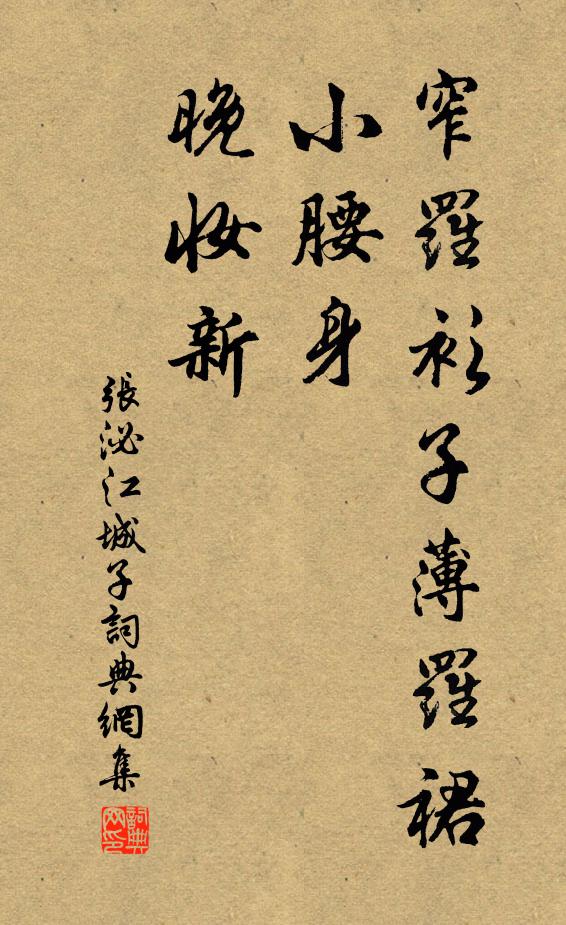 窄羅衫子薄羅裙
小腰身
晚妝新
張泌江城子詞典網集
詞典網印